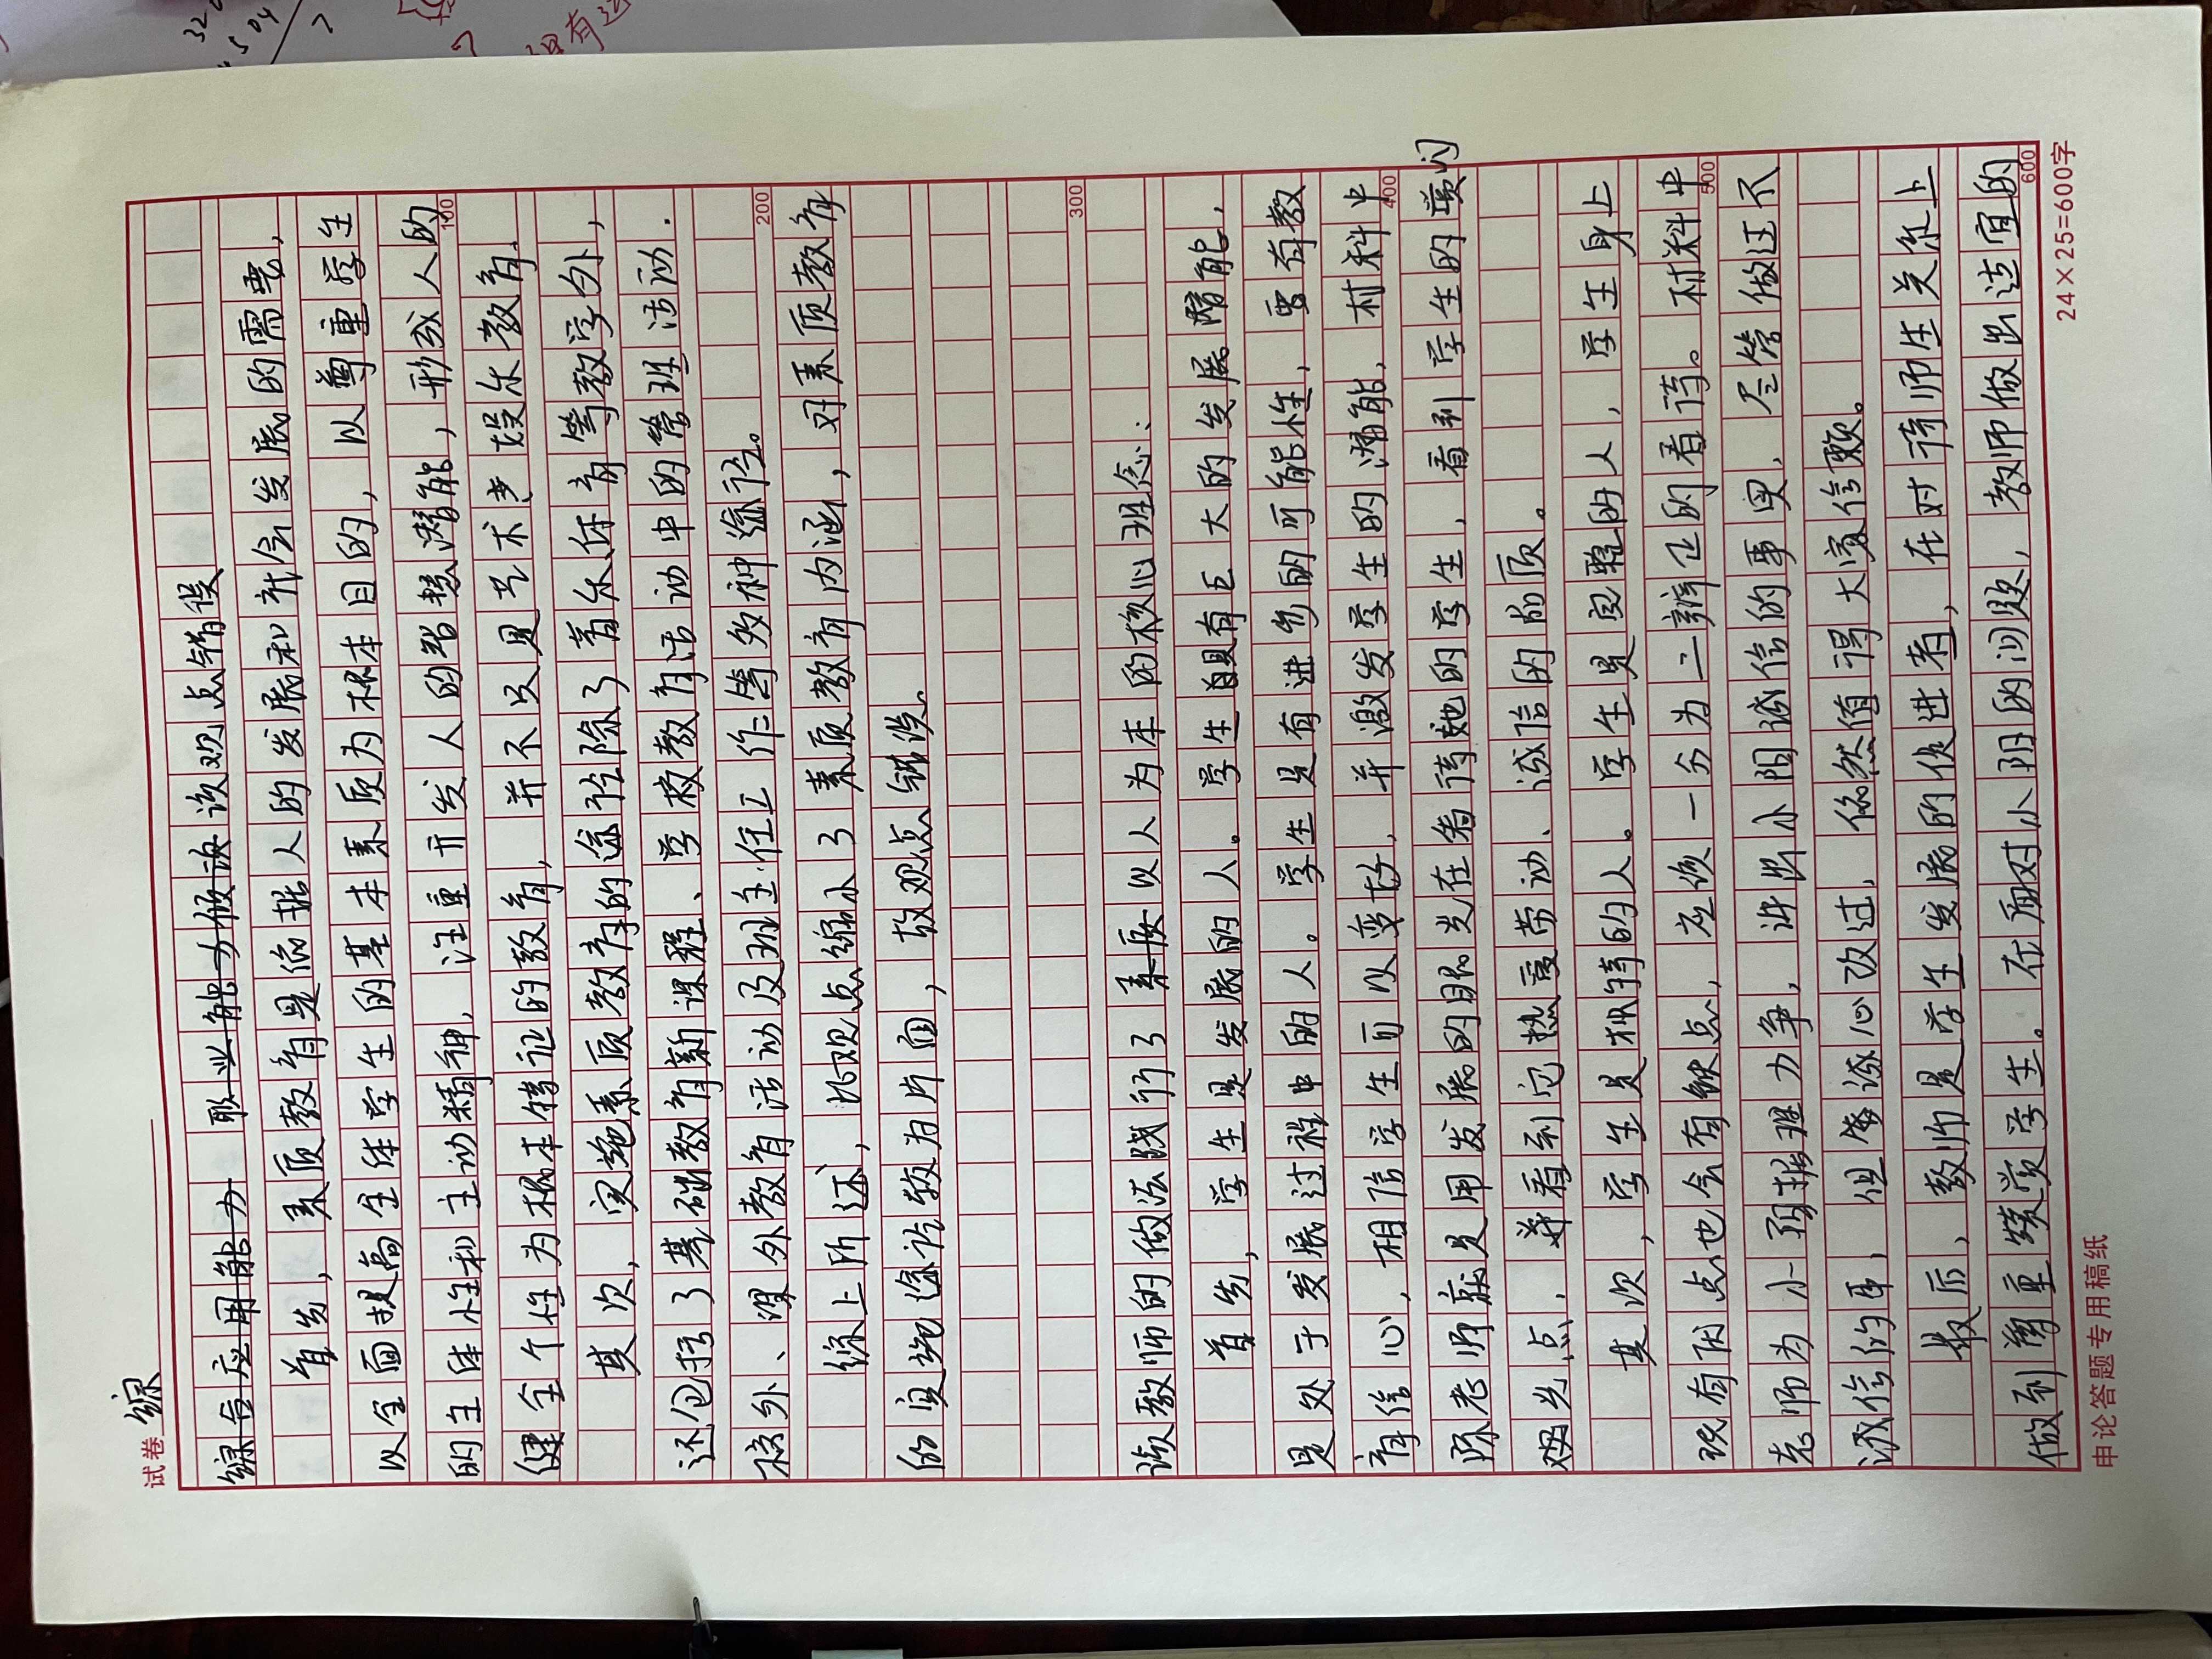 试卷 综
综合应用能力 职业能力做该 该观点错误
首先，素质教育是依据人的发展和社会发展的需要，
以全面提高全体学生的基本素质为根本目的，以尊重学生
的主体性和主动精神，注重开发人的智慧潜能，形成人的
健全个性为根本特征的教育，并不只是艺术类娱乐教育.
其次，实施素质教育的途径除了音乐体育等教学外，
还包括了基础教育新课程、学校教育活动中的管班活动.
校外、课外教育活动及班主任工作等多种途径。
综上所述，此观点缩小了素质教育内涵，对素质教育
的实施途径较为片面，故观点错误。
该教师的做法践行了素质以人为本的核心理念.
首先，学生是发展的人。学生具有巨大的发展潜能，
是处于发展过程中的人。学生是有进步的可能性，要有教
育信心，相信学生可以变好，并激发学生的潜能，材料中
陈老师就是用发展的眼光在看待她的学生，看到学生的闪
光点，看到它热爱劳动、诚信的品质。
其次，学生是独特的人。学生是完整的人，学生身上
既有闪点也会有缺点，应该一分为二辨正的看待。材料中
老师为小阳据理力争，讲出小阳诚信的事实，尽管做过不
诚信的事，但诚心改过，依然值得大家信赖。
最后，教师是学生发展的促进者，在对待师生关系上
做到尊重赞赏学生。在面对小阳的问题，教师做出适宜的
100
200
300
400
500
600
24×25=600字
申论答题专用稿纸